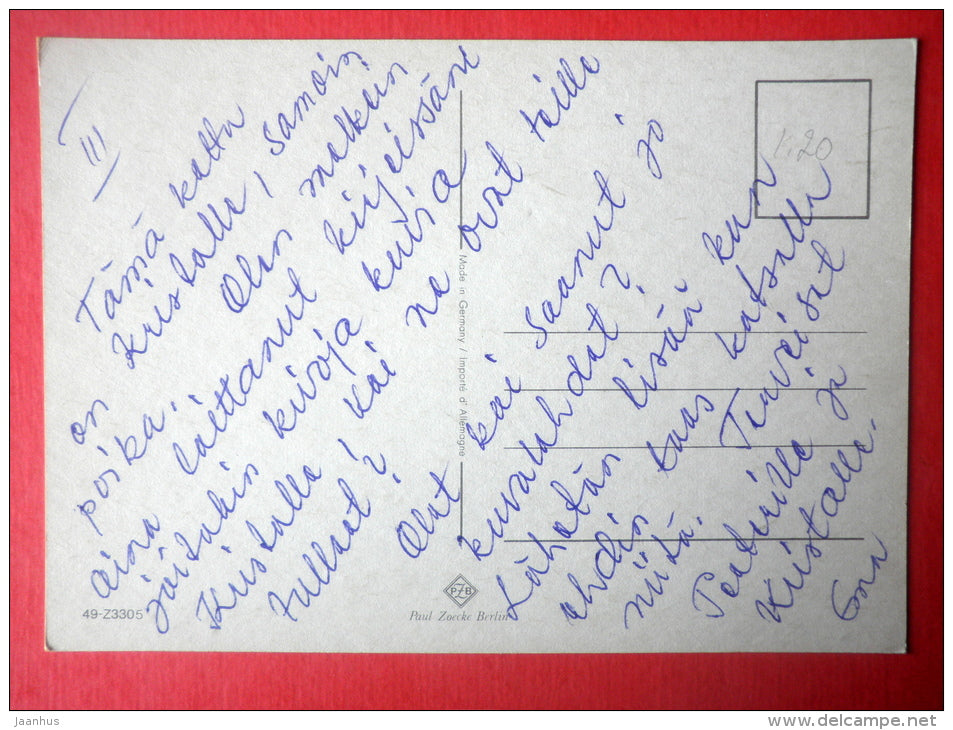 III
Tämä kattu
Kristalle, samoin
on
poika. Olen melkein
aina laittanut kirjeissäne
joitakin kivoja kuvia
Kristalle! Kai ne ovat teille
tulleet?
Olet kai saanut jo
kuvalahdat?
Lähetän lisää kun
ehdin taas katsella
niitä. Terveiset
Peeterille ja
Kristalle.
Eeva
1.20
Made in Germany / Importé d'Allemagne
49-Z3305
PZB
Paul Zoecke Berlin
Jaanhus
www.delcampe.net